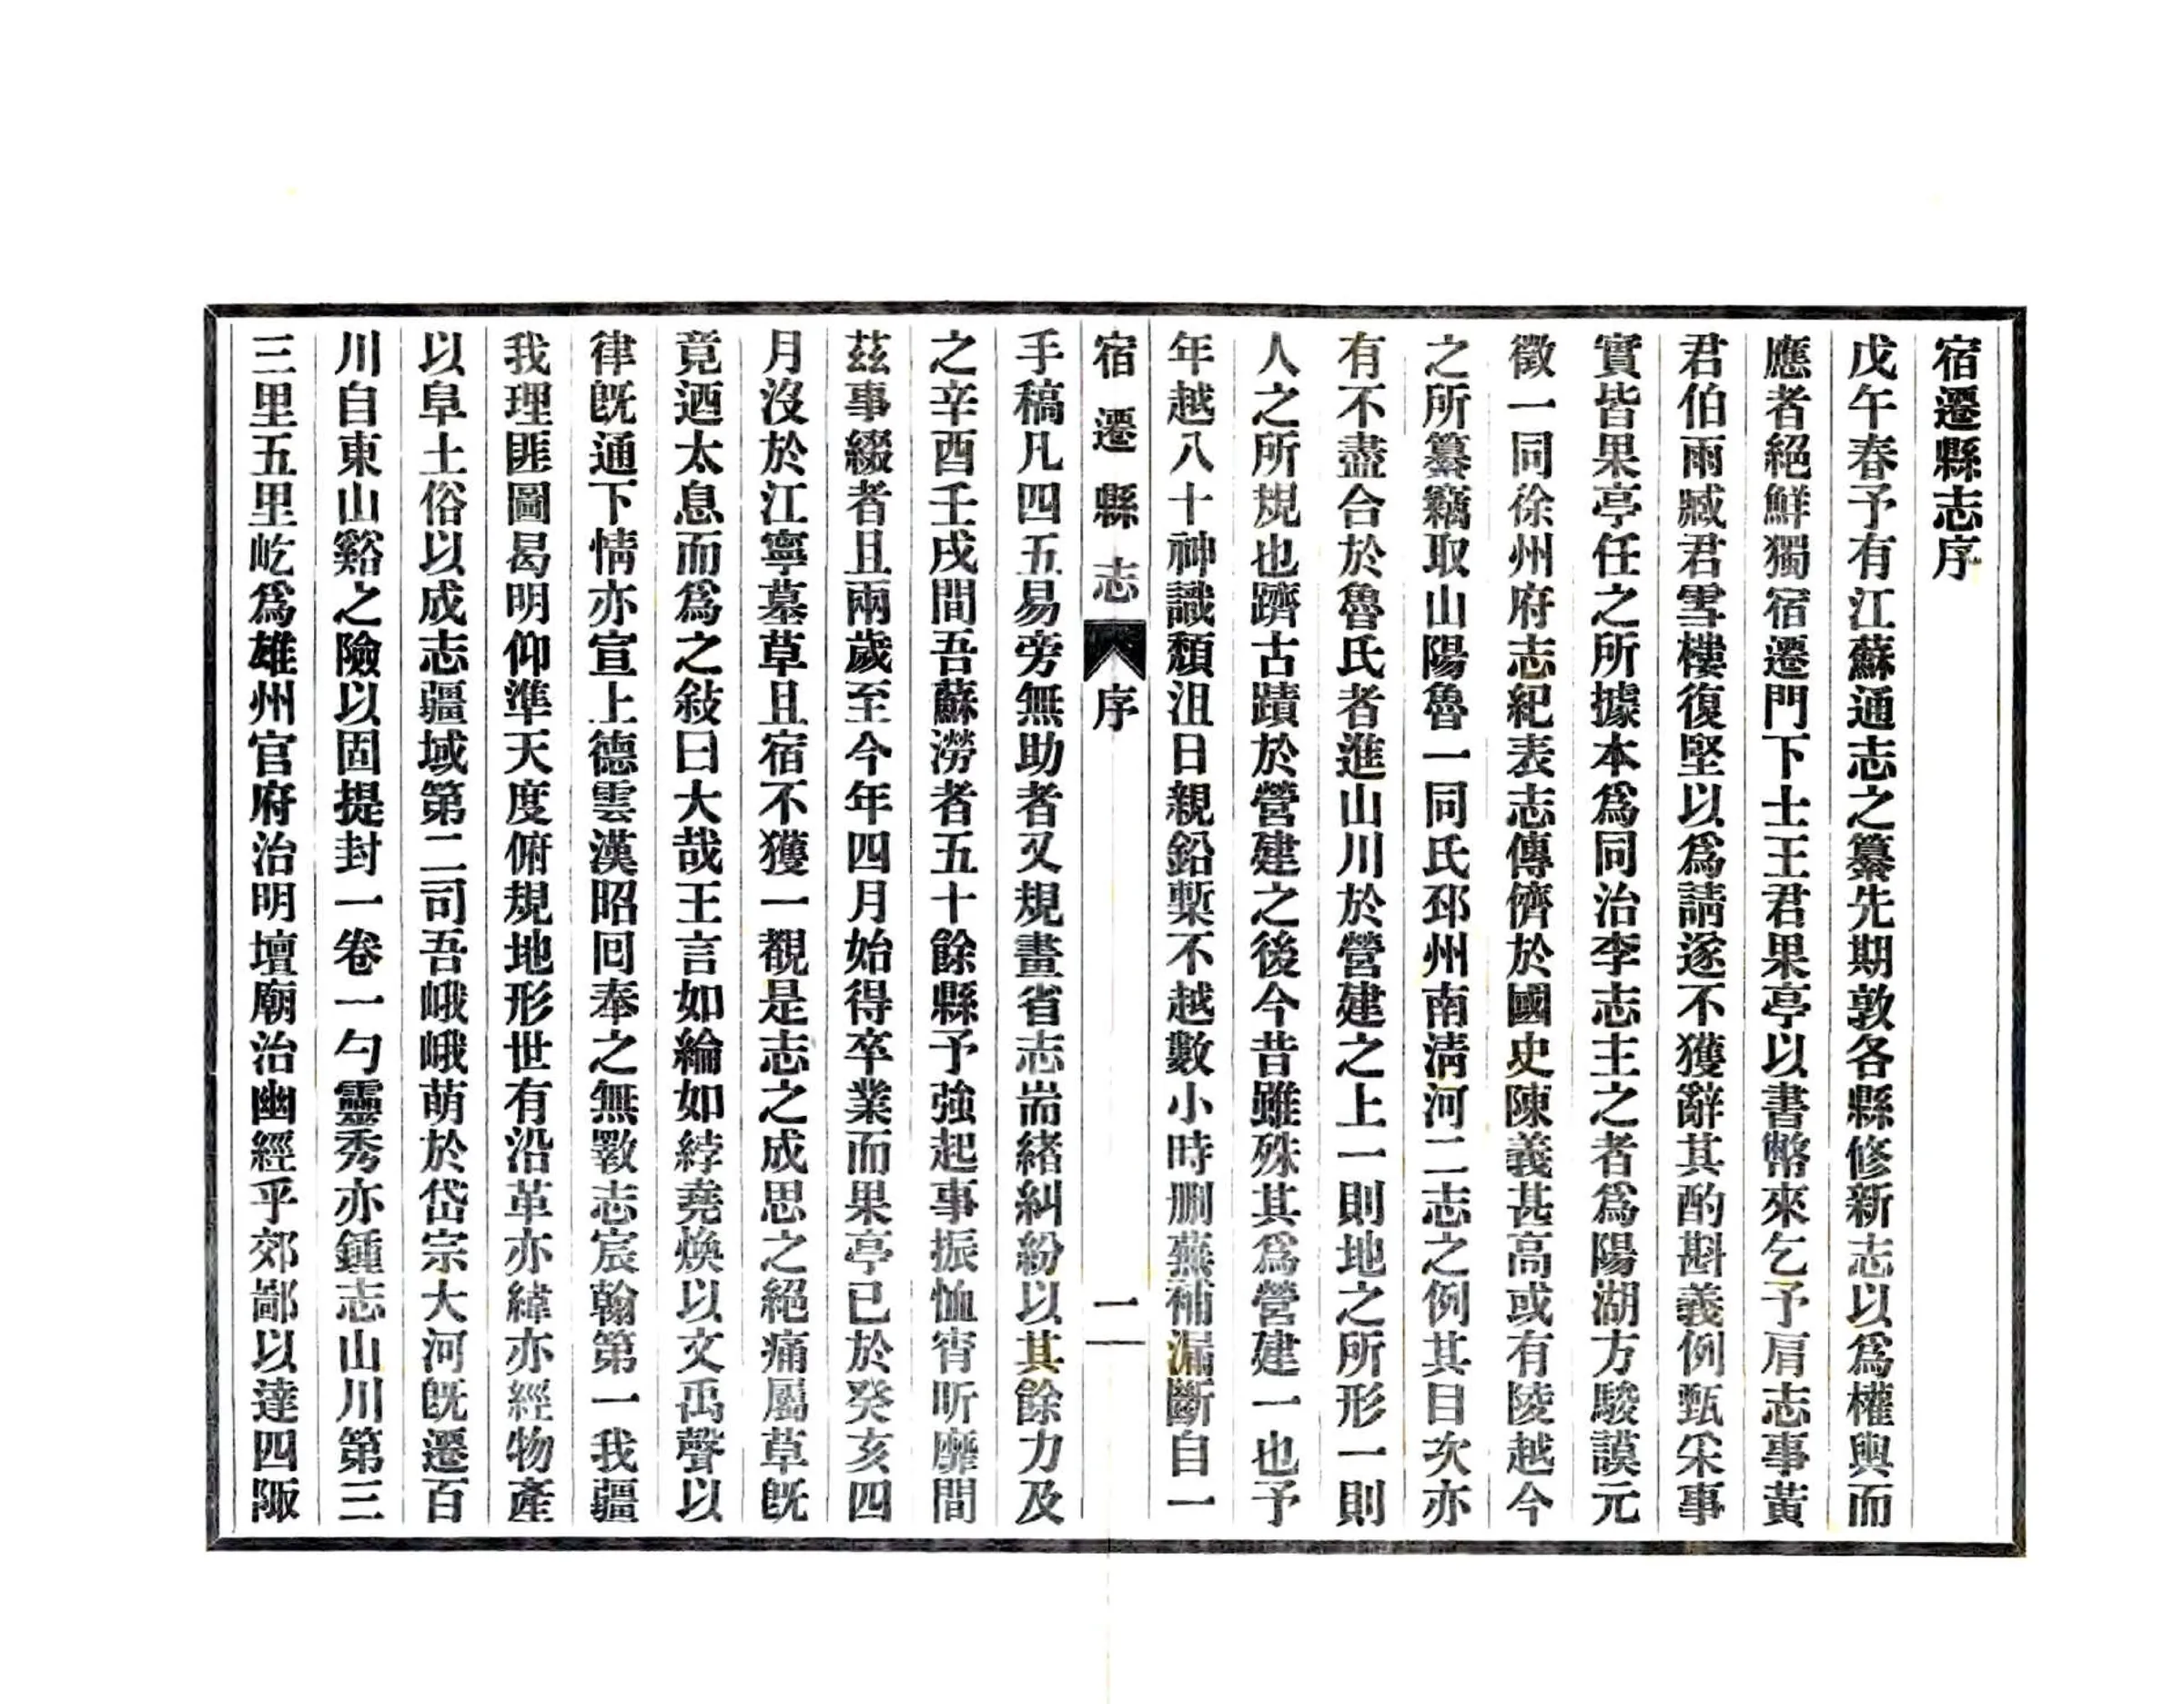 宿遷縣志序
戊午春予有江蘇通志之纂先期敦各縣修新志以爲權輿而
應者絕鮮獨宿遷門下士王君果亭以書幣來乞予肩志事黃
君伯雨臧君雪樓復堅以爲請遂不獲辭其酌斟義例甄采事
實皆果亭任之所據本爲同治李志主之者爲陽湖方駿謨元
徵一同徐州府志紀表志傳儕於國史陳義甚高或有陵越今
之所纂竊取山陽魯一同氏邳州南淸河二志之例其目次亦
有不盡合於魯氏者進山川於營建之上一則地之所形一則
人之所規也躋古蹟於營建之後今昔雖殊其爲營建一也予
年越八十神識頹沮日親鉛槧不越數小時刪蕪補漏斷自一
宿遷縣志 序 二一
手稿凡四五易旁無助者又規畫省志耑緒糾紛以其餘力及
之辛酉壬戌間吾蘇澇者五十餘縣予強起事振恤宵昕靡間
茲事綴者且兩歲至今年四月始得卒業而果亭已於癸亥四
月沒於江寧墓草且宿不獲一覩是志之成思之絕痛屬草旣
竟迺太息而爲之敍曰大哉王言如綸如綍堯煥以文禹聲以
律旣通下情亦宣上德雲漢昭囘奉之無斁志宸翰第一我疆
我理匪圖曷明仰準天度俯規地形世有沿革亦緯亦經物產
以阜土俗以成志疆域第二司吾峨峨萌於岱宗大河旣遷百
川自東山谿之險以固提封一卷一勺靈秀亦鍾志山川第三
三里五里屹爲雄州官府治明壇廟治幽經乎郊鄙以達四陬